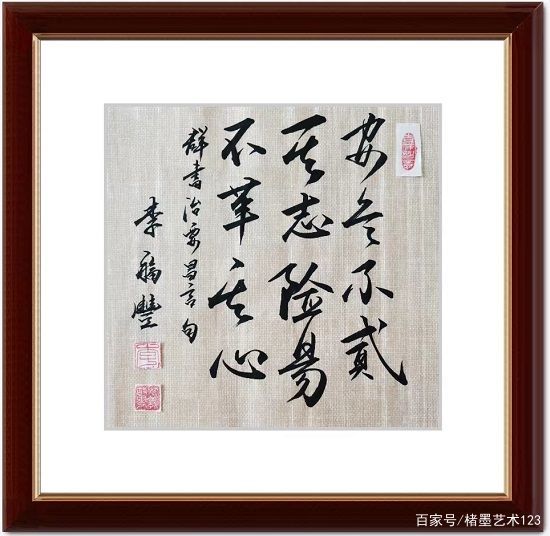 安危不贰
其志险易
不革其心
群书治要昌言句
李福丰
百家号/楮墨艺术123